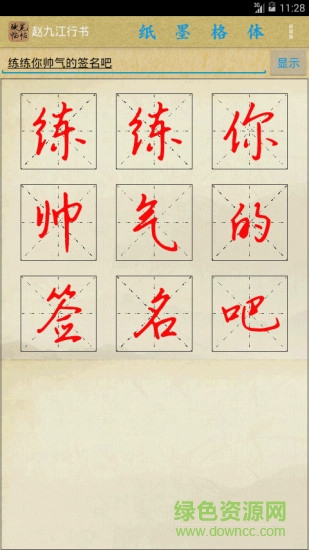 11:28
硬笔临帖
赵九江行书 纸 墨 格 体
练练你帅气的签名吧 显示
练 练 你
帅 气 的
签 名 吧
绿色资源网
www.downcc.com